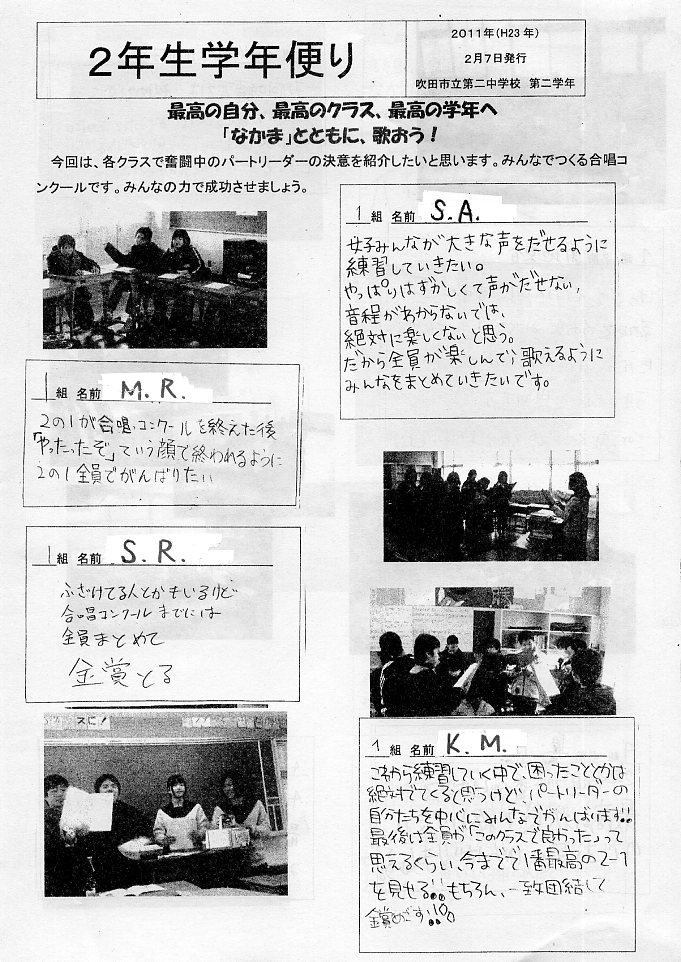 ２年生学年便り
2011年(H23年)
2月7日発行
吹田市立第二中学校 第二学年
最高の自分、最高のクラス、最高の学年へ
「なかま」とともに、歌おう！
今回は、各クラスで奮闘中のパートリーダーの決意を紹介したいと思います。みんなでつくる合唱コ
ンクールです。みんなの力で成功させましょう。
1 組 名前 S.A.
女子みんなが大きな声をだせるように
練習していきたい。
やっぱりはずかしくて声がだせない、
音程がわからないでは、
絶対に楽しくないと思う。
だから全員が楽しんで、歌えるように
みんなをまとめていきたいです。
1 組 名前 M.R.
2の1が合唱コンクールを終えた後
「やったったぞ」ていう顔で終われるように
2の1全員でがんばりたい
1 組 名前 S.R.
ふざけてる人とかもいるけど
合唱コンクールまでには
全員まとめて
金賞とる
スに！
1 組 名前 K.M.
これから練習していく中で、困ったこととかは
絶対でてくると思うけど、パートリーダーの
自分たちを中心にみんなでがんばります!!
最後は全員が「このクラスで良かった」って
思えるくらい、今までで1番最高の2-1
を見せる!! もちろん、一致団結して
金賞めざす!!